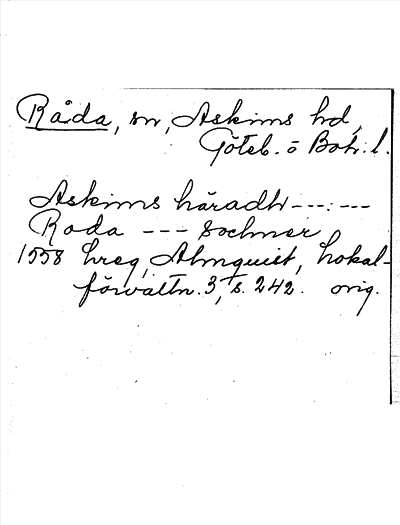 Råda, sn, Askims hd,
Göteb. o Boh. l.
Askims häradh ---:---
Roda --- sochner
1558 hreg, Almquist, Lokal-
förvaltn. 3, s. 242. orig.